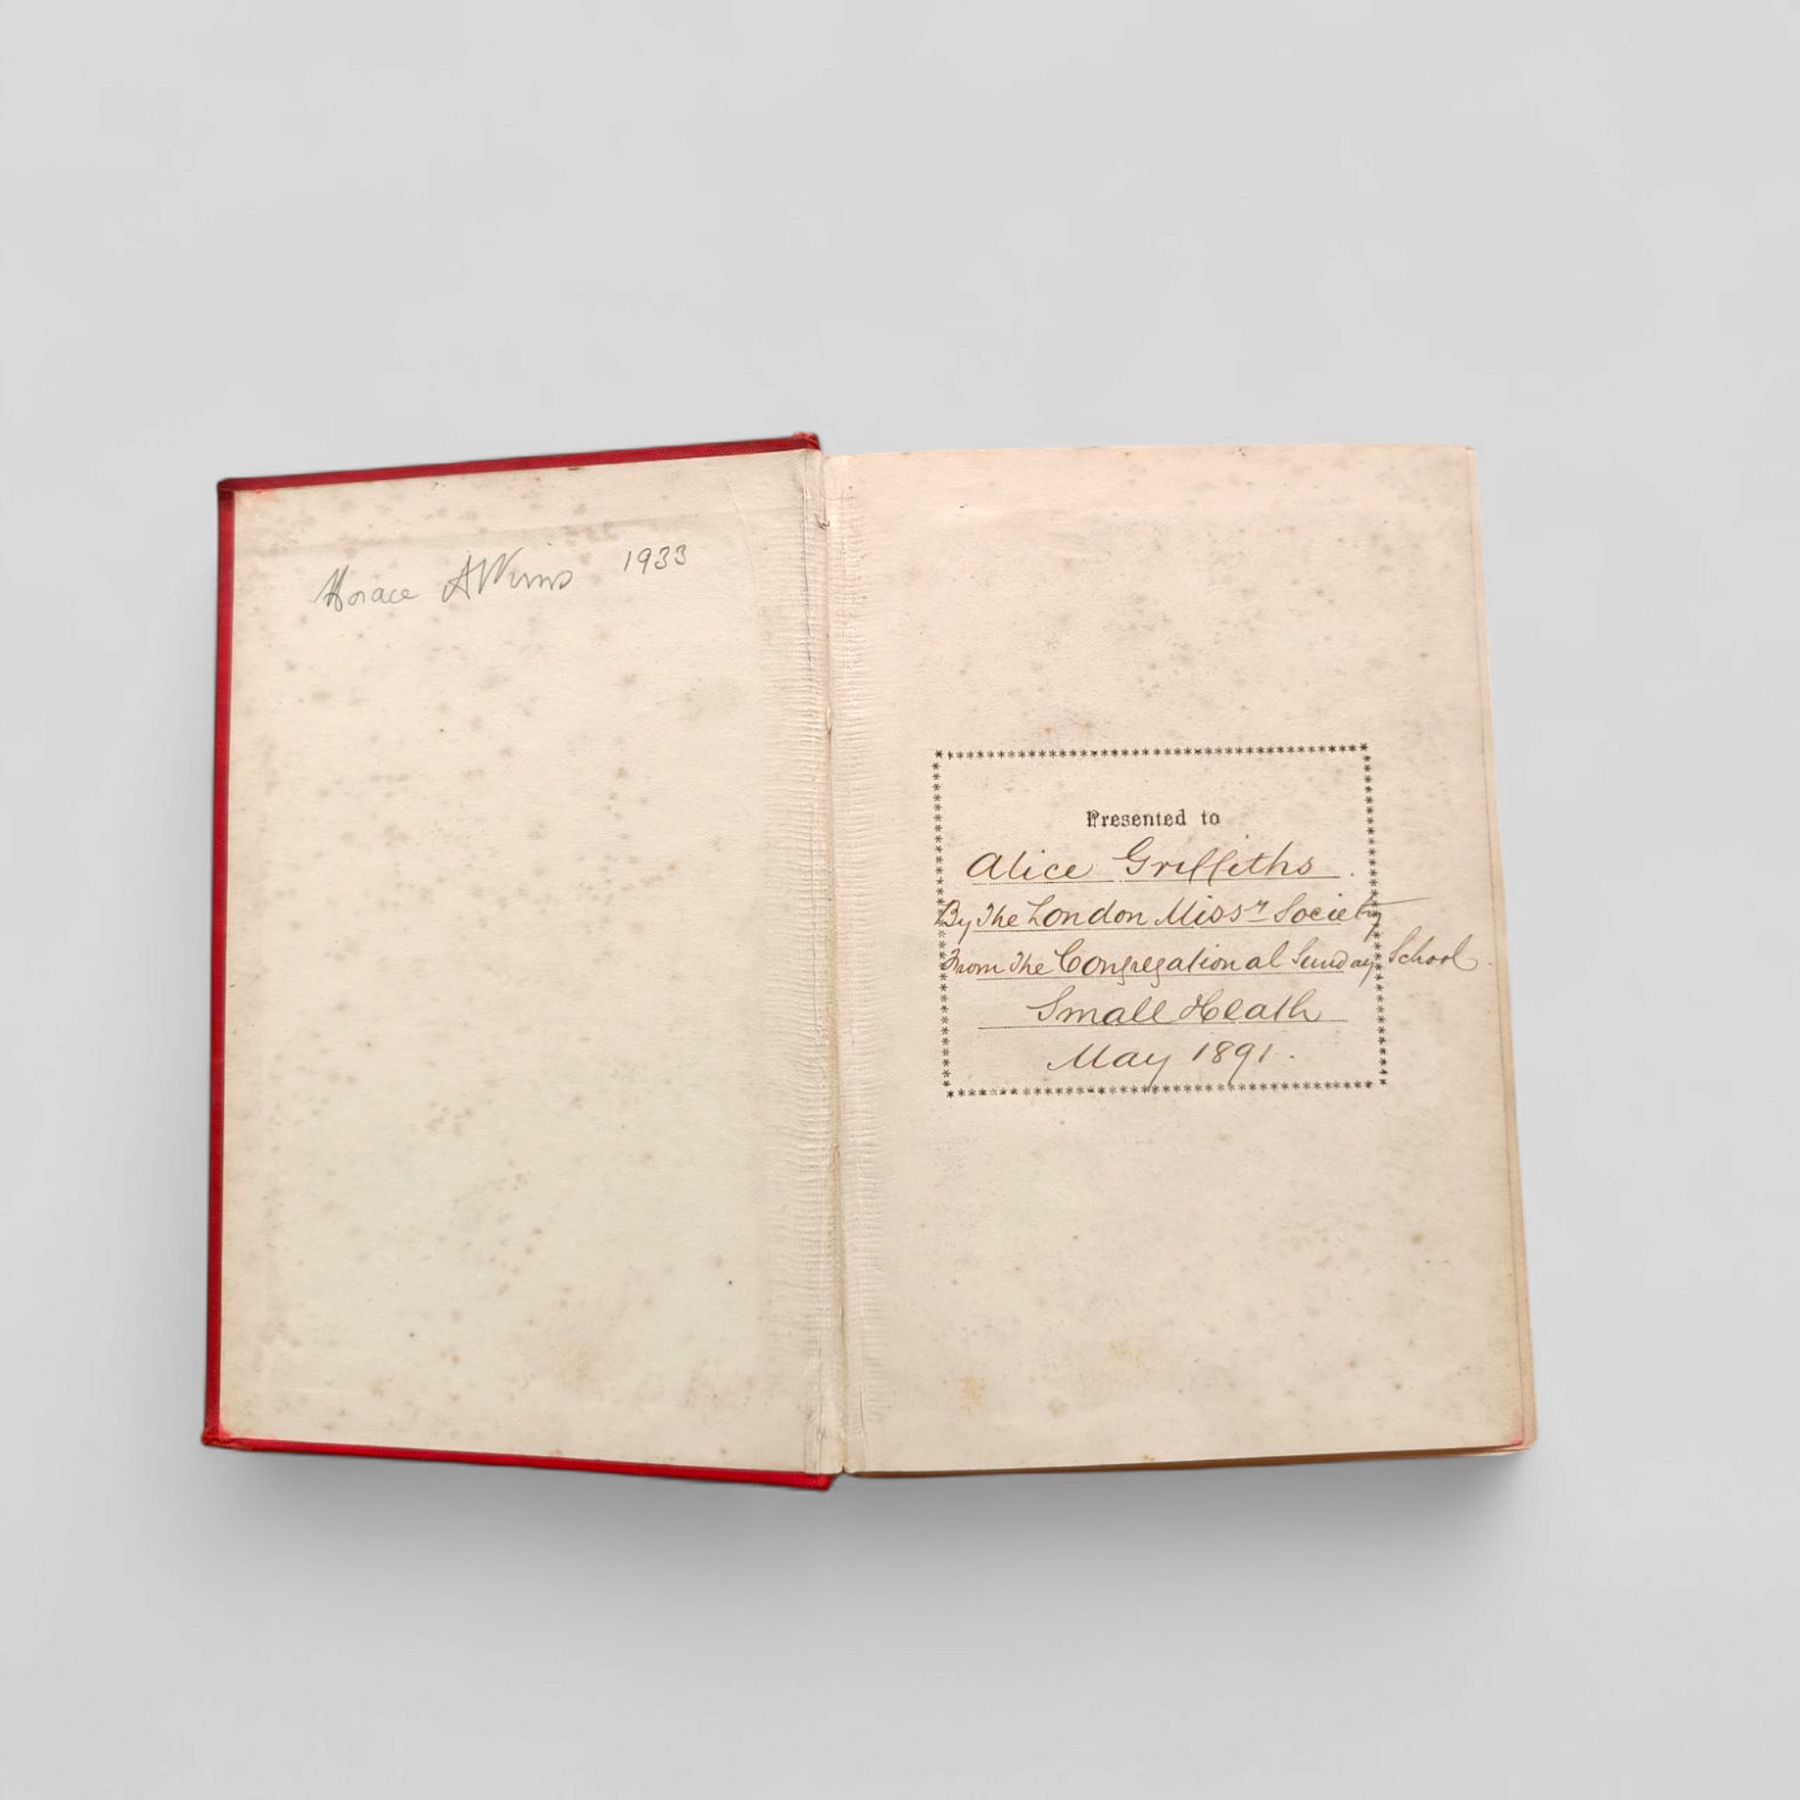 Horace Atkins 1933
Presented to
Alice Griffiths.
By The London Missy Society
From The Congregational Sunday School.
Small Heath
May 1891.